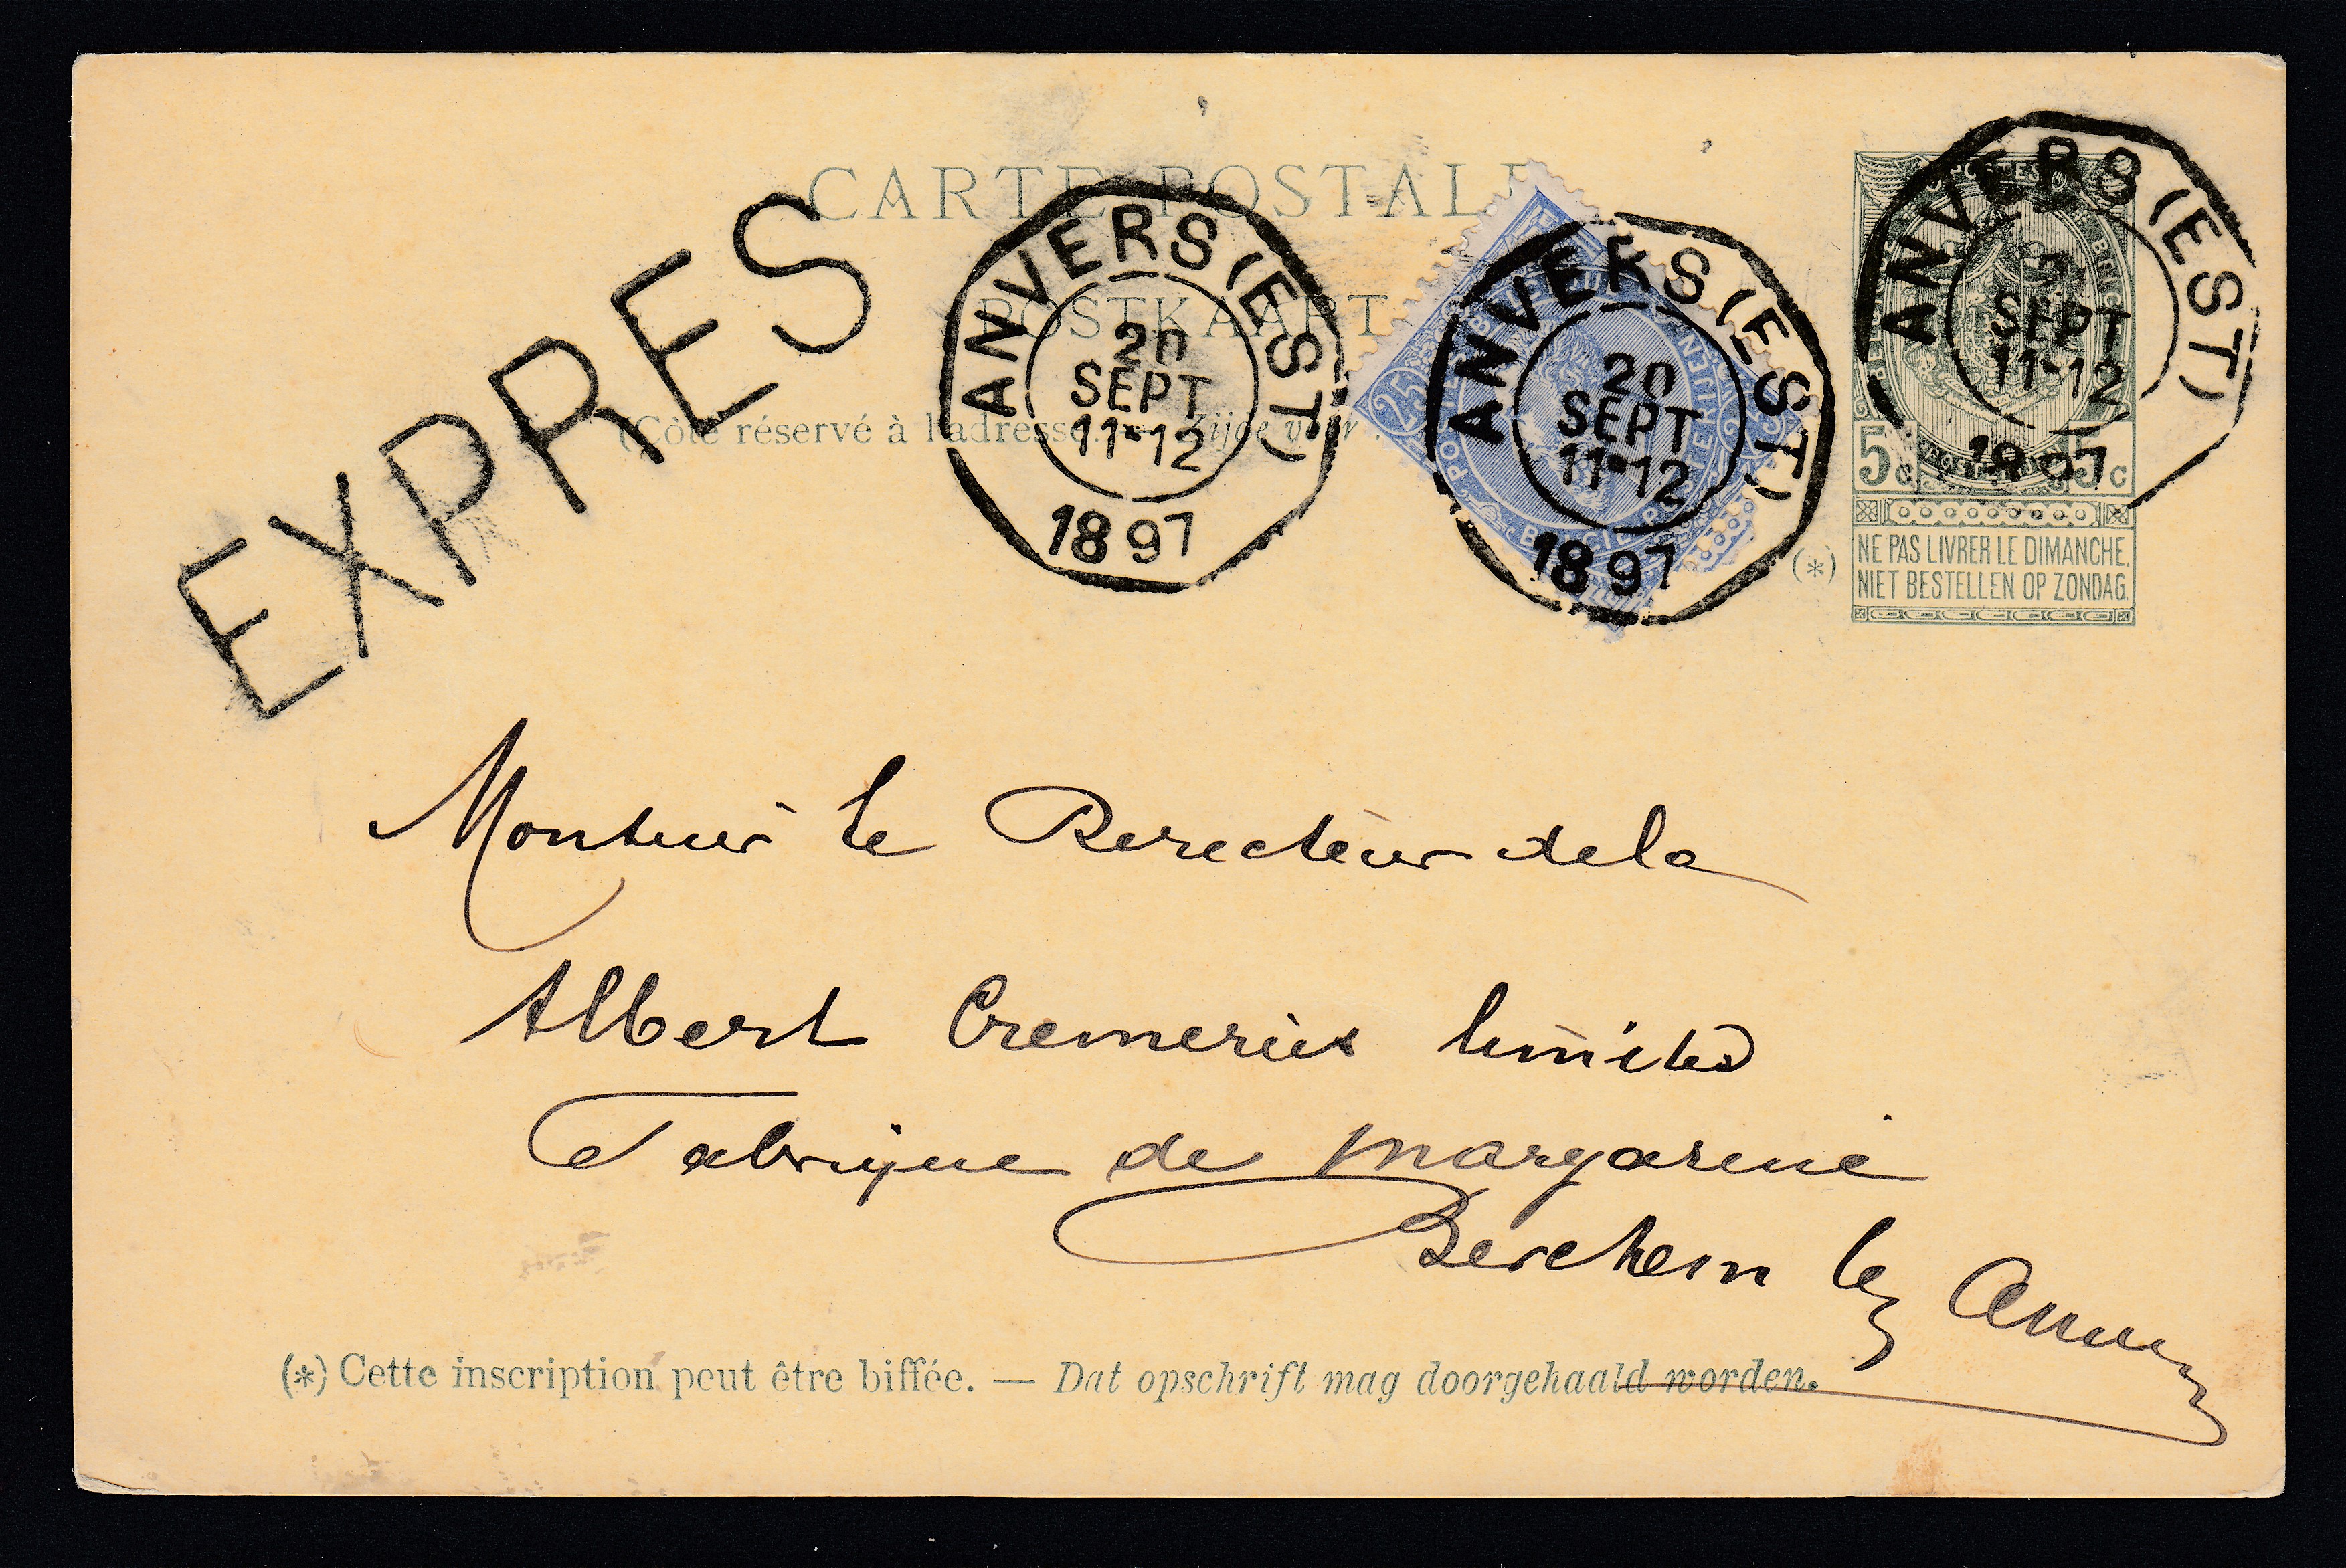 CARTE POSTALE
POSTKAART
(Côté réservé à l'adresse. Zijde voor
EXPRES
ANVERS (EST)
20
SEPT
11-12
1897
25
ANVERS (EST)
20
SEPT
11-12
1897
ANVERS (EST)
SEPT
11-12
1897
POSTES
5c 5c
(*) NE PAS LIVRER LE DIMANCHE.
NIET BESTELLEN OP ZONDAG.
Monsieur le Directeur de la
Albert Cremeries limited
Fabrique de margarine
Berchem lez Anvers
(*) Cette inscription peut être biffée. — Dat opschrift mag doorgehaald worden.